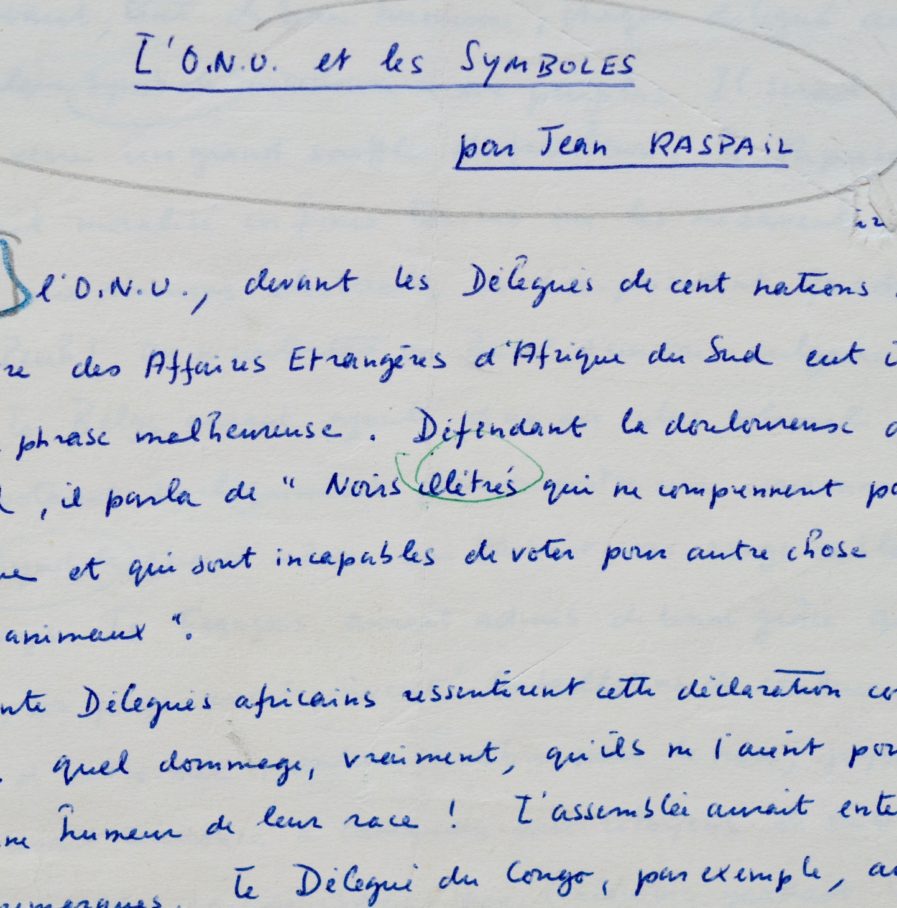 L'O.N.U. et les SYMBOLES
par Jean RASPAIL
l'O.N.U., devant les Délégués de cent nations
re des Affaires Etrangères d'Afrique du Sud eut
phrase malheureuse. Défendant la douloureuse
, il parla de "Noirs illétrés qui ne comprennent pa
et qui sont incapables de voter pour autre chose
animaux".
nte Délégués africains ressentirent cette déclaration co
quel dommage, vraiment, qu'ils ne l'aient pa
ne humeur de leur race ! L'assemblée aurait ente
Le Délégué du Congo, par exemple, au